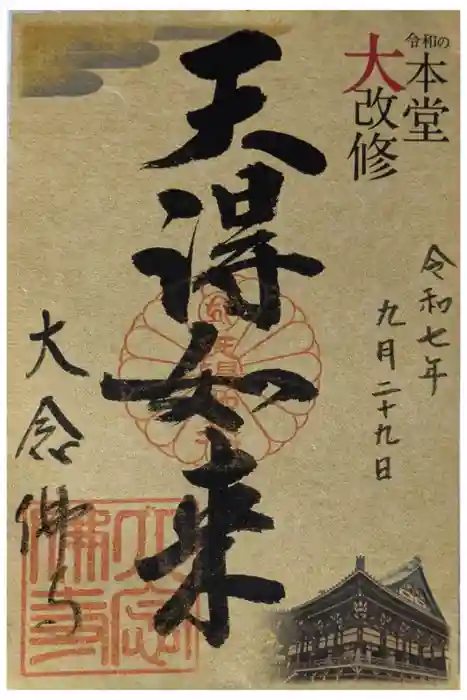 令和の
本堂
大改修
令和七年
九月二十九日
天得如来
大念佛寺
大念
佛寺